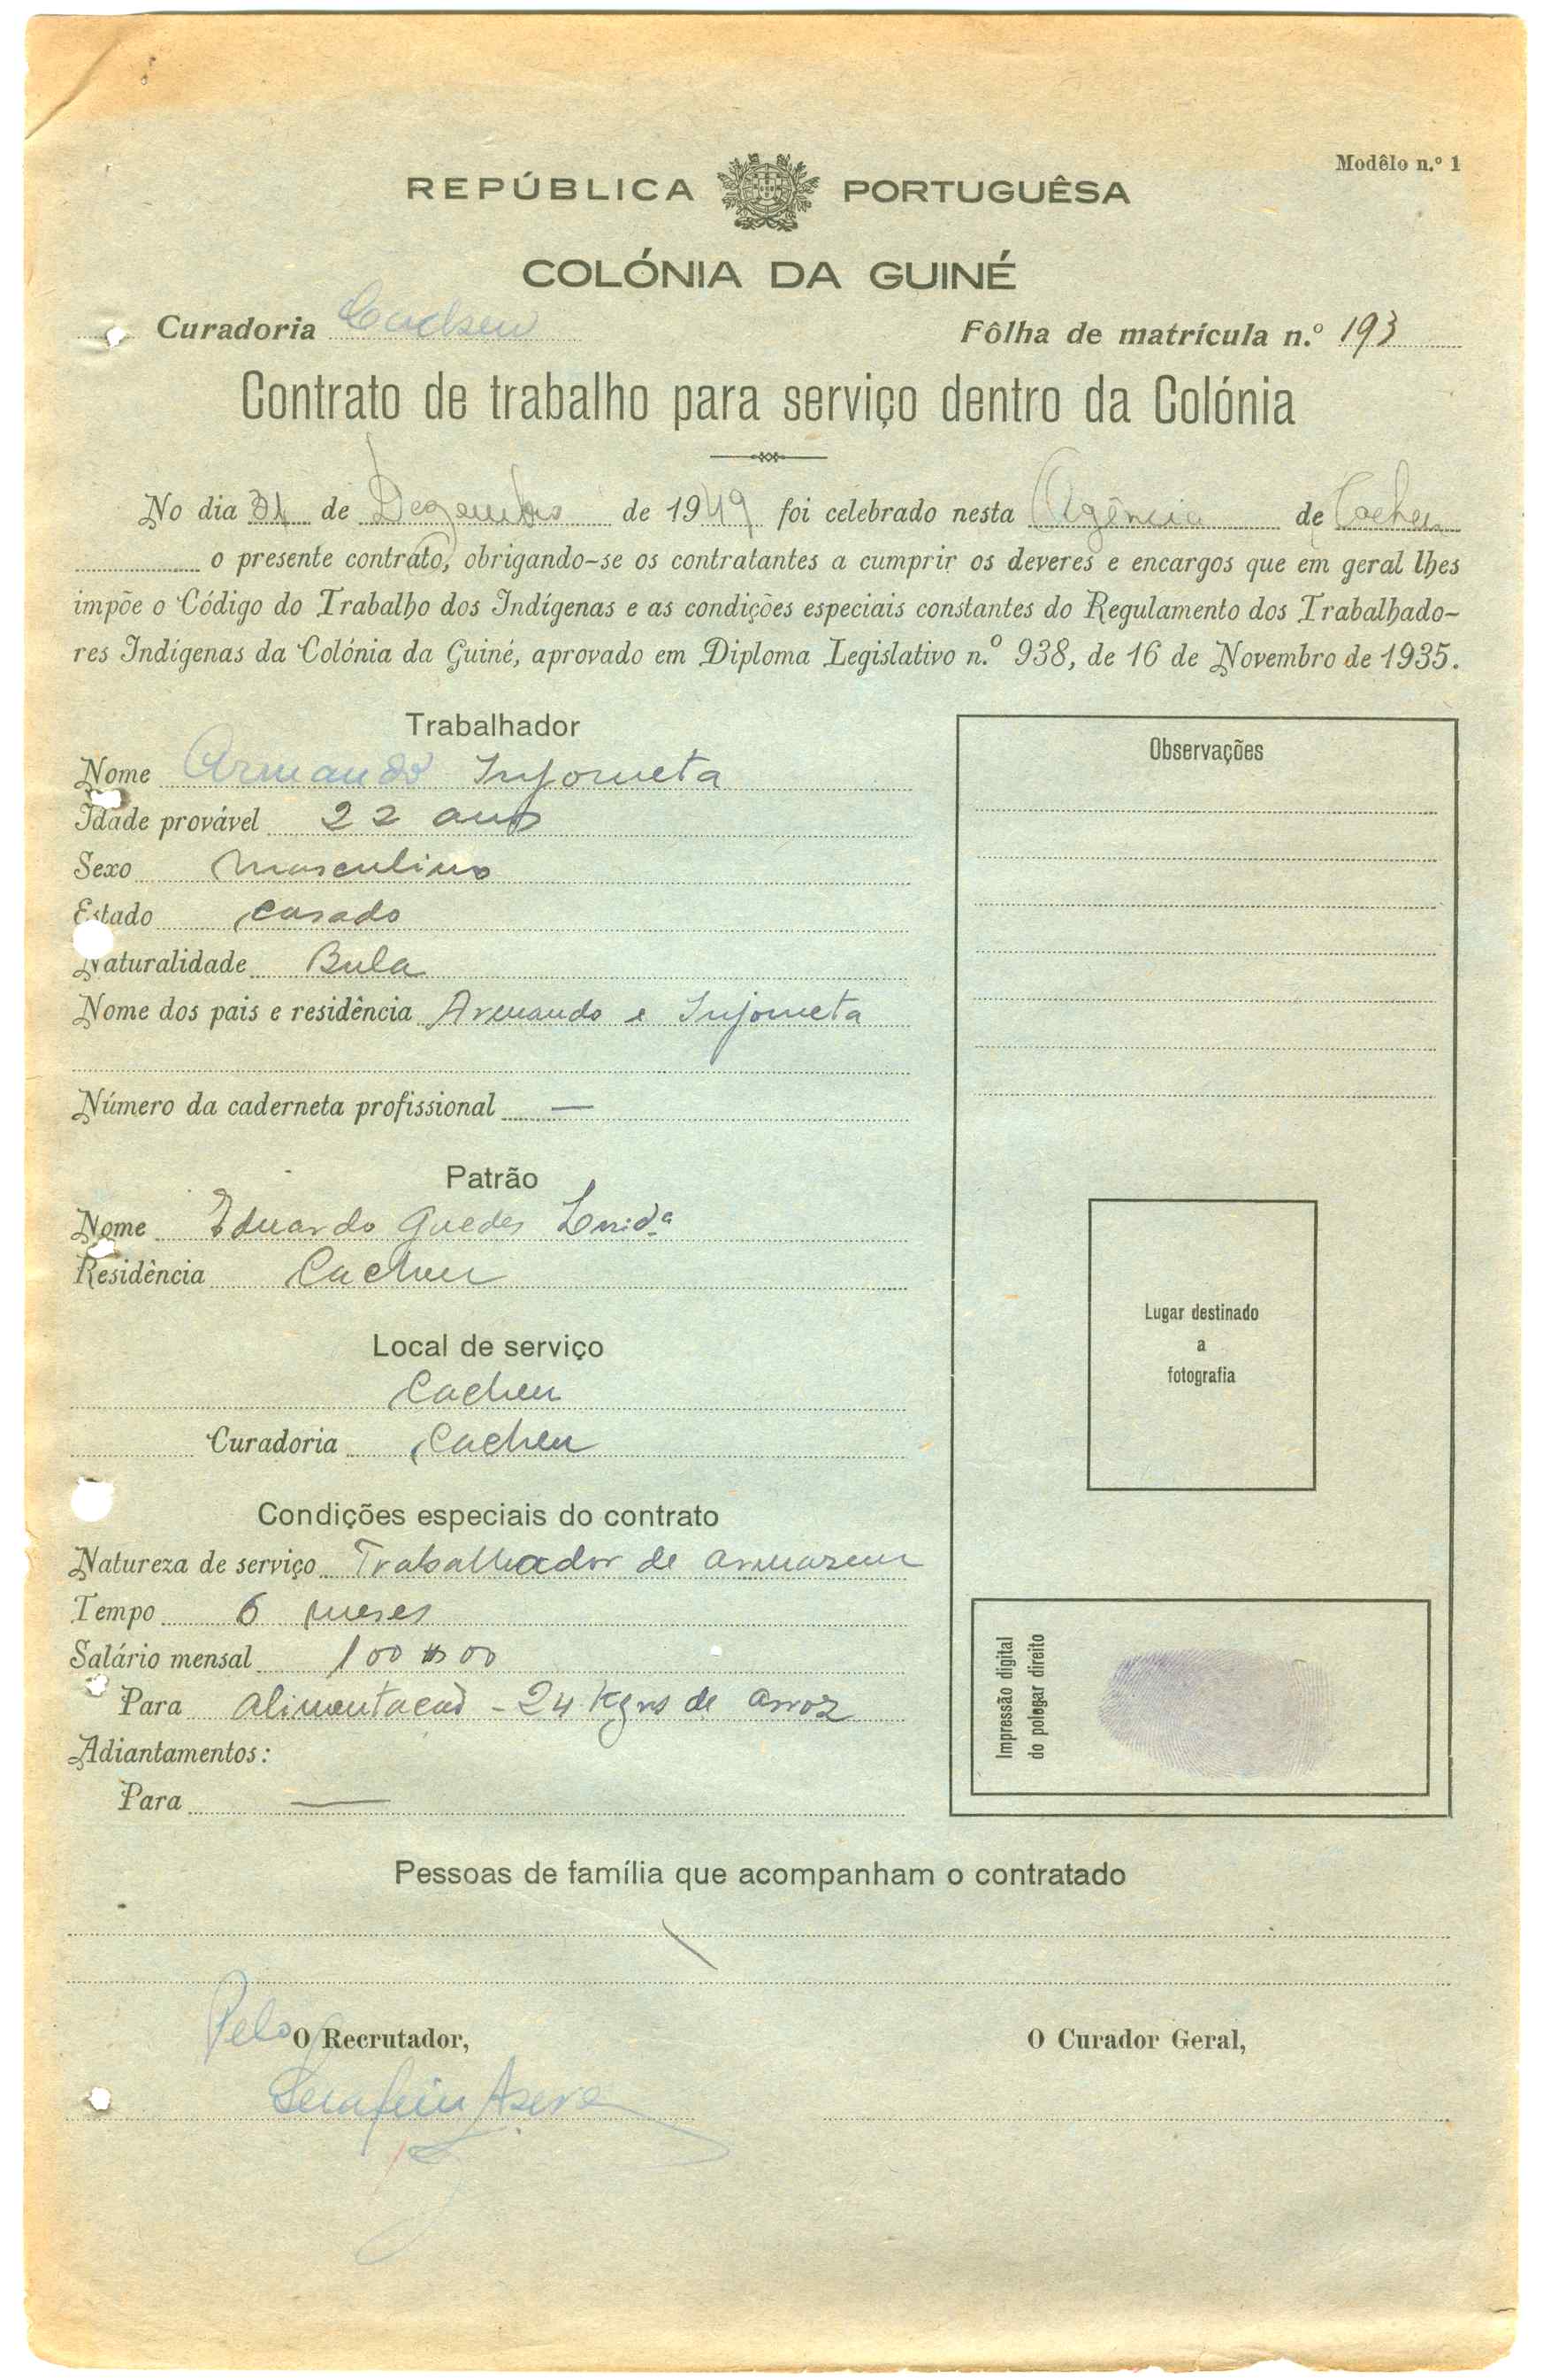 Modêlo n.º 1
REPÚBLICA PORTUGUÊSA
COLÓNIA DA GUINÉ
Curadoria Cacheu Fôlha de matrícula n.º 193
Contrato de trabalho para serviço dentro da Colónia
No dia 31 de Dezembro de 1949 foi celebrado nesta Agência de Cacheu
o presente contrato, obrigando-se os contratantes a cumprir os deveres e encargos que em geral lhes
impõe o Código do Trabalho dos Indígenas e as condições especiais constantes do Regulamento dos Trabalhado-
res Indígenas da Colónia da Guiné, aprovado em Diploma Legislativo n.º 938, de 16 de Novembro de 1935.
Trabalhador
Nome Armando Injometa
Idade provável 22 anos
Sexo Masculino
Estado casado
Naturalidade Bula
Nome dos pais e residência Armando e Injometa
Número da caderneta profissional —
Patrão
Nome Eduardo Guedes
Residência Cacheu
Local de serviço
Cacheu
Curadoria Cacheu
Condições especiais do contrato
Natureza de serviço Trabalhador de armazem
Tempo 6 meses
Salário mensal 100$00
Para alimentacão - 24 Kgrs de arroz
Adiantamentos:
Para —
Observações
Lugar destinado
a
fotografia
Impressão digital
do polegar direito
Pessoas de família que acompanham o contratado
Pelo O Recrutador,
Serafim
O Curador Geral,